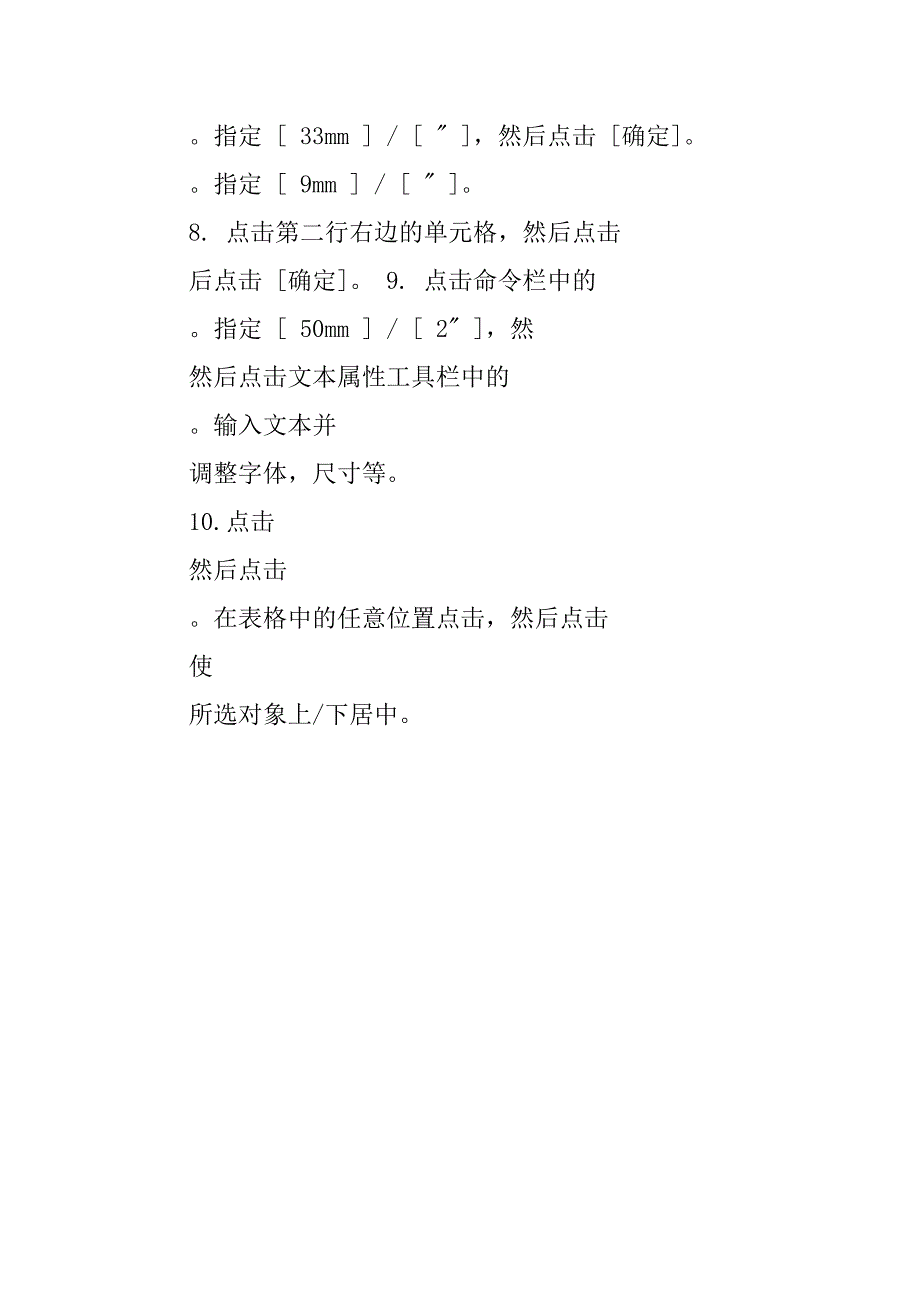 。指定 [ 33mm ] / [ ″ ]，然后点击 [确定]。
。指定 [ 9mm ] / [ ″ ]。
8. 点击第二行右边的单元格，然后点击
后点击 [确定]。 9. 点击命令栏中的
。指定 [ 50mm ] / [ 2″ ]，然
然后点击文本属性工具栏中的
。输入文本并
调整字体，尺寸等。
10.点击
然后点击
。在表格中的任意位置点击，然后点击
使
所选对象上/下居中。